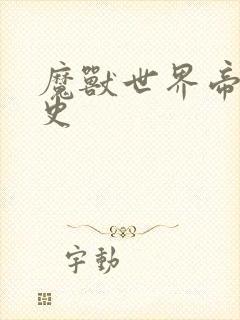 魔獸世界帝
史
字動